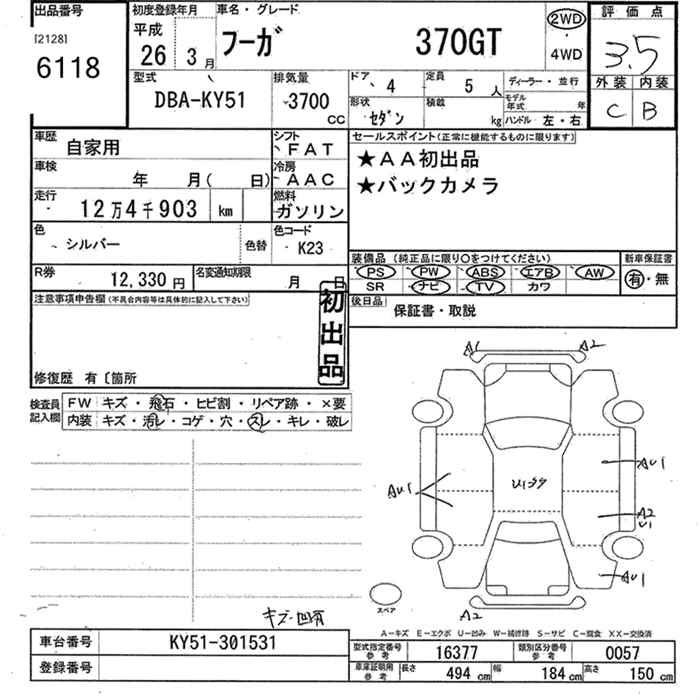 出品番号 初度登録年月 車名・グレード 評価点
[2128] 平成
6118 26 3月 フーガ 370GT 2WD・4WD 3.5
型式 排気量 ドア 4 定員 5人 ディーラー・並行 外装 内装
DBA-KY51 3700 CC 形状 セダン 積載 kg モデル年式 年 ハンドル 左・右 C B
車歴 自家用 シフト FAT セールスポイント(正常に機能するものに限ります)
車検 年 月( 日) 冷房 AAC ★AA初出品
走行 12万4千903 km 燃料 ガソリン ★バックカメラ
色 シルバー 色替 色コード K23
装備品(純正品に限り○をつけてください) 新車保証書
R券 12,330円 名変通知期限 月 日 PS PW ABS エアB AW 有・無
SR ナビ TV カワ
注意事項申告欄(不具合内容等は具体的に記入して下さい) 初出品 後日品 保証書・取説
修復歴 有〔箇所
検査員記入欄 FW キズ・飛石・ヒビ割・リペア跡・×要
内装 キズ・汚レ・コゲ・穴・スレ・キレ・破レ
A1 A2
AU1
U1 AU1
A2
U1
AU1
スペア A2
キズ・凹有
A-キズ E-エクボ U-凹み W-補修跡 S-サビ C-腐食 XX-交換済
車台番号 KY51-301531 型式指定番号 参考 16377 類別区分番号 参考 0057
登録番号 車庫証明用 参考 長さ 494 cm 幅 184 cm 高さ 150 cm